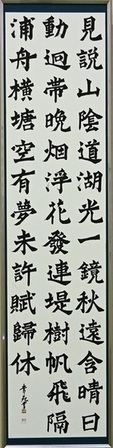 見説山陰道湖光一鏡秋遠含晴日
動迴帶晩烟浮花發連堤樹帆飛隔
浦舟橫塘空有夢未許賦歸休